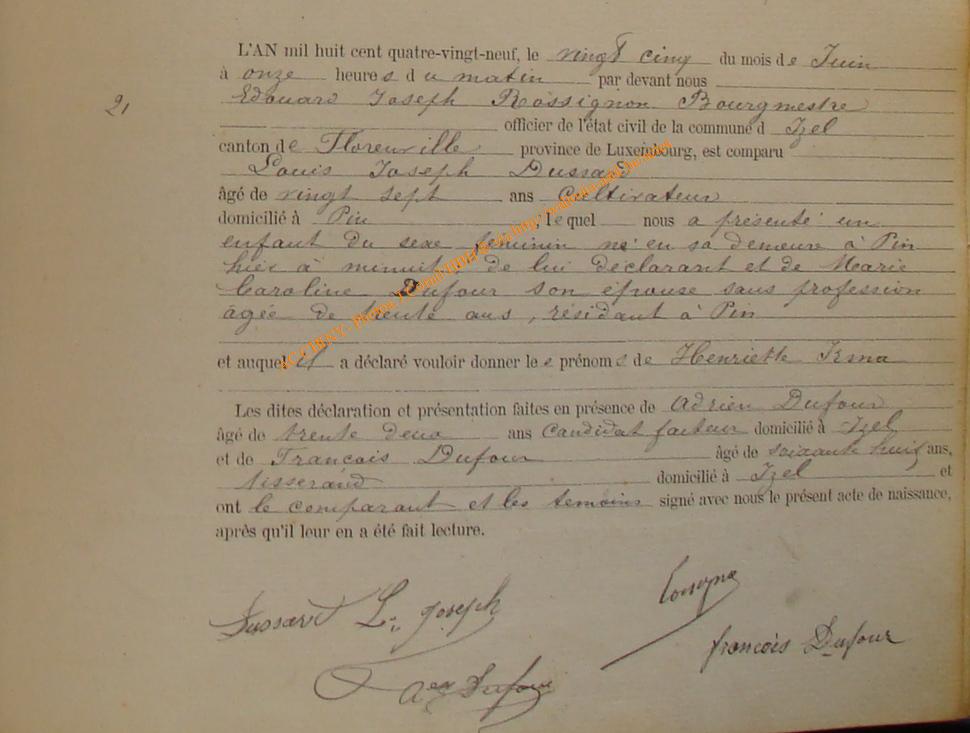 L'AN mil huit cent quatre-vingt-neuf, le vingt cinq du mois de Juin
à onze heures du matin par devant nous
Edouard Joseph Rossignon Bourgmestre
21
officier de l'état civil de la commune d Izel
canton de Florenville province de Luxembourg, est comparu
Louis Joseph Dussard
âgé de vingt sept ans Cultivateur
domicilié à Pin lequel nous a présenté un
enfant du sexe féminin né en sa demeure à Pin
hier à minuit, de lui déclarant et de Marie
Caroline Dufour son épouse sans profession
âgée de trente ans, résidant à Pin
et auquel il a déclaré vouloir donner les prénoms de Henriette Irma
Les dites déclaration et présentation faites en présence de Adrien Dufour
âgé de trente deux ans candidat facteur domicilié à Izel
et de François Dufour âgé de soixante huit ans,
tisserand domicilié à Izel et
ont le comparant et les témoins signé avec nous le présent acte de naissance,
après qu'il leur en a été fait lecture.
Dussart L. Joseph
françois Dufour
Dufour